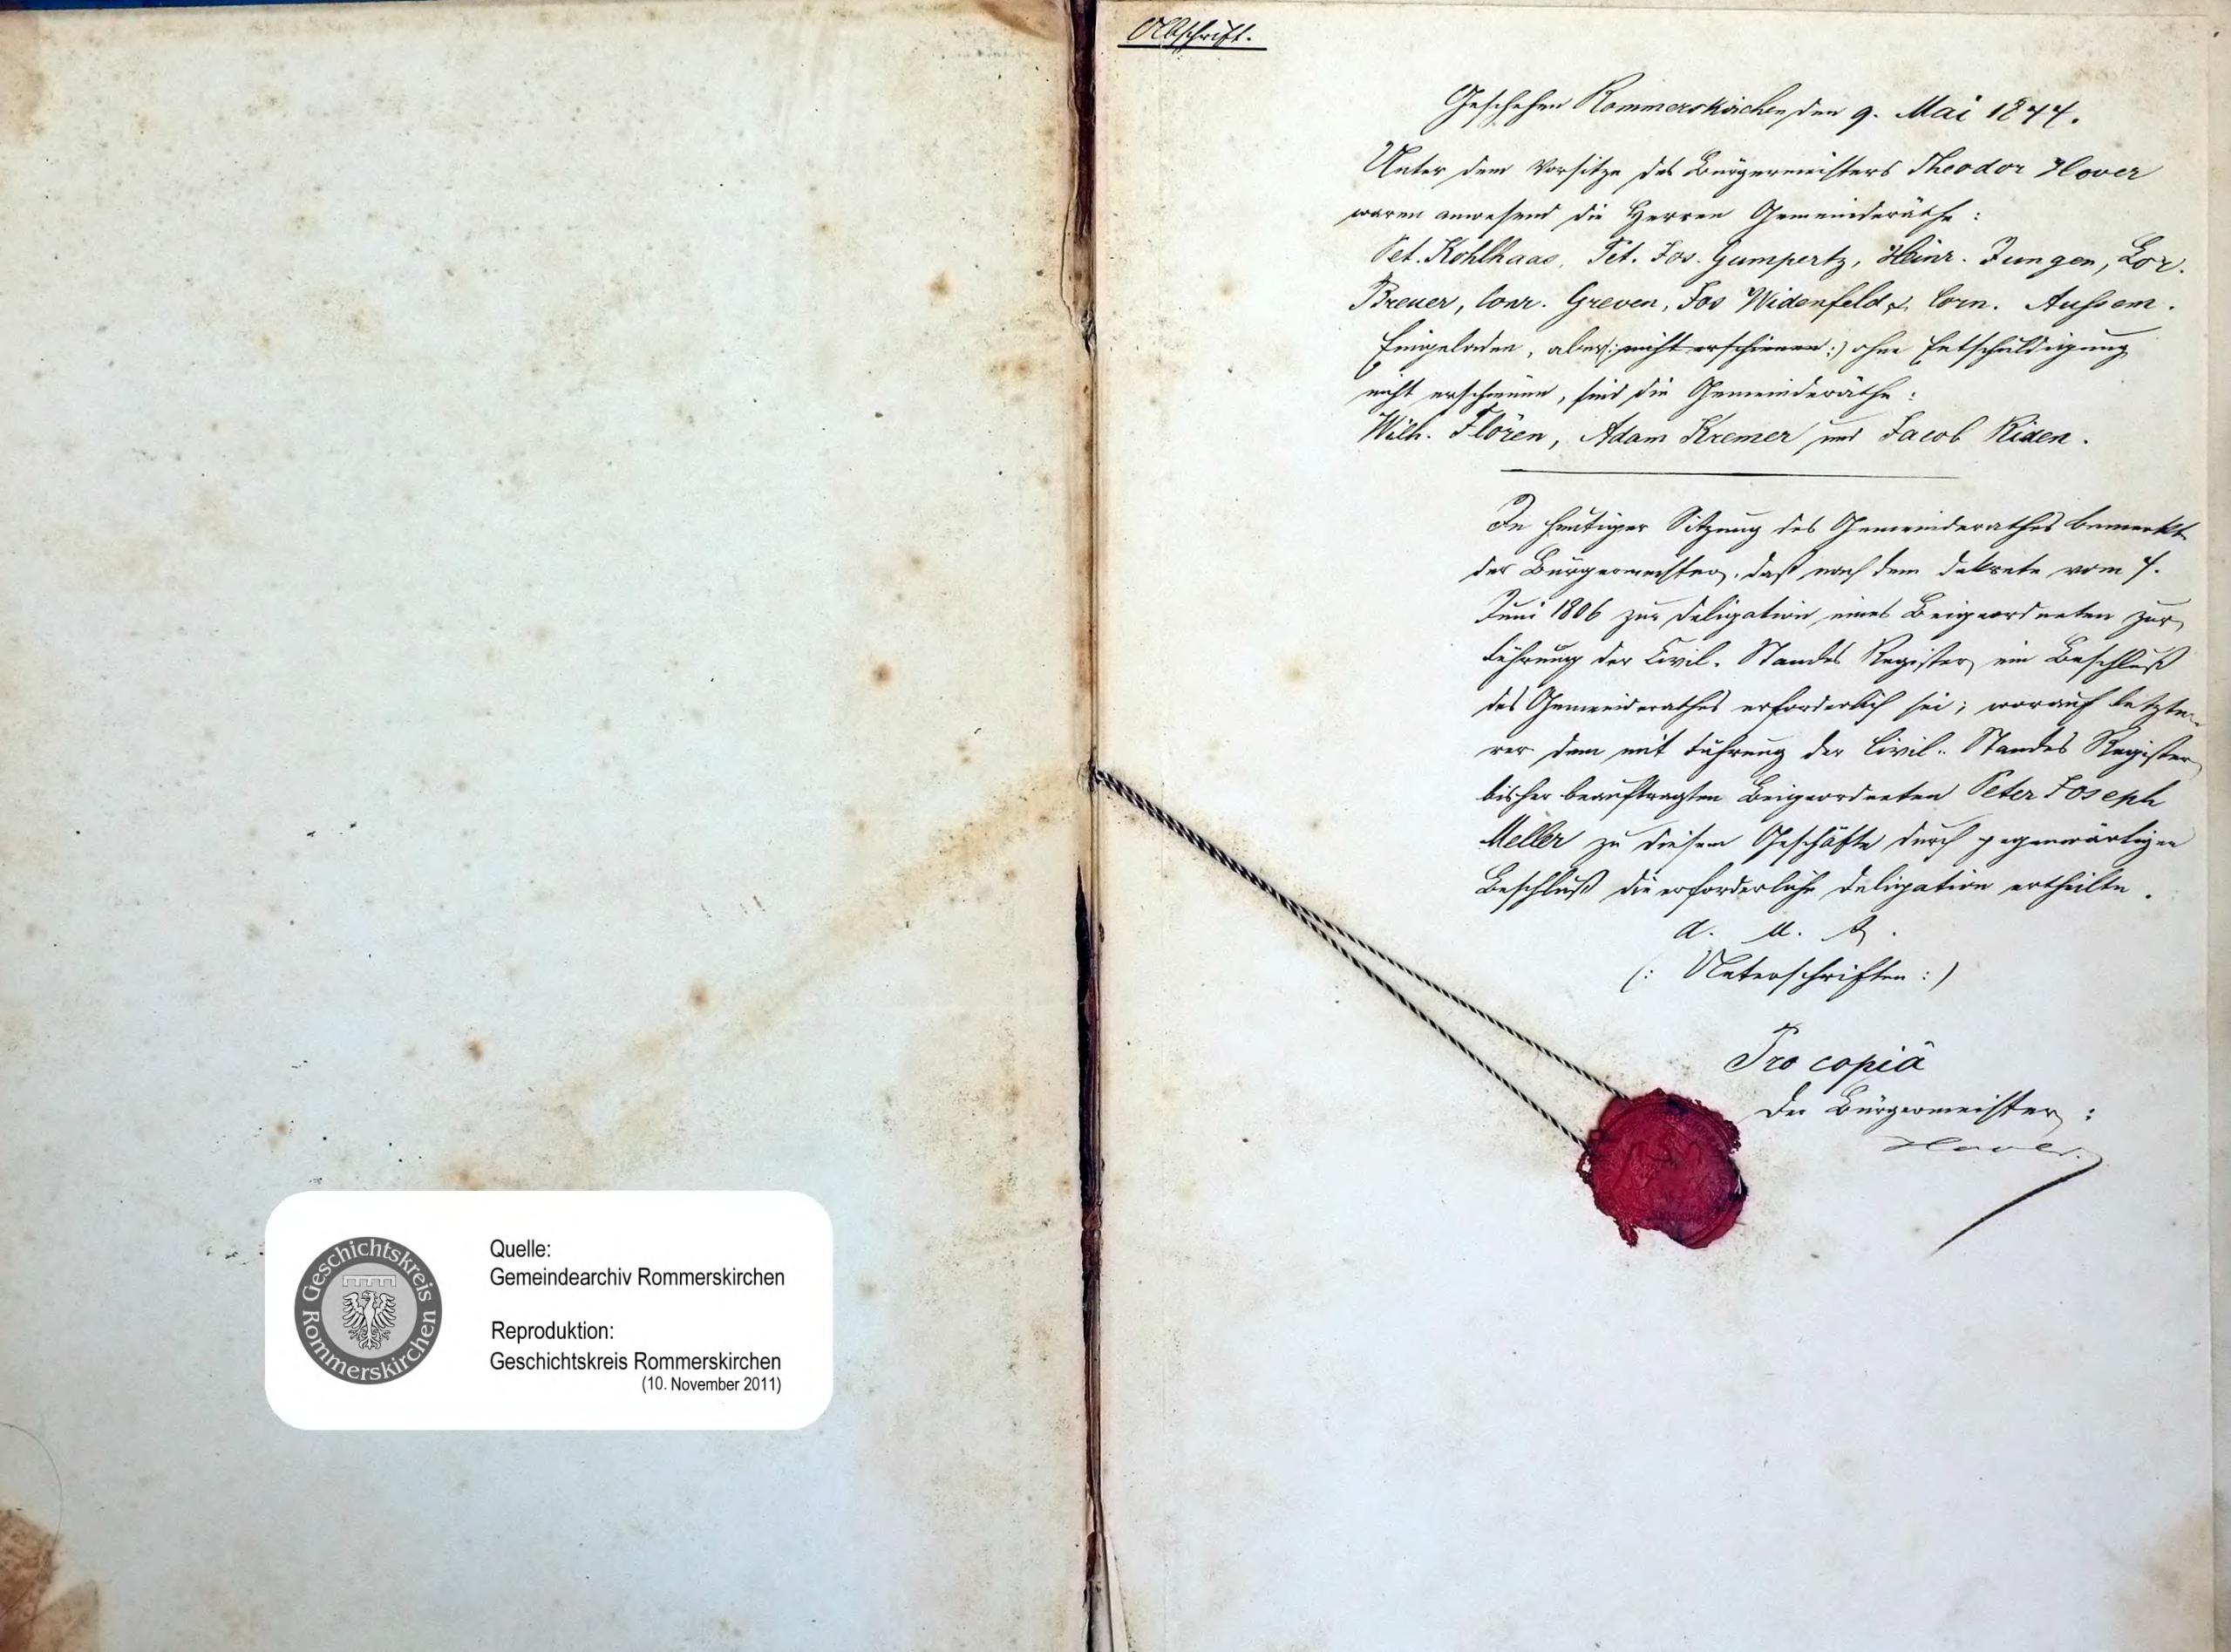 Abschrift.
Geschehen Rommerskirchen, den 9. Mai 1844.
Unter dem Vorsitze des Bürgermeisters Theodor Hover
waren anwesend die Herren Gemeinderäthe:
Pet. Kohlhaas, Pet. Jos. Gumpertz, Heinr. Jungen, Lor.
Breuer, Conr. Greven, Jos Widenfeld & Corn. Aussem.
Eingeladen, aber (: nicht erschienen :) ohne Entschuldigung
nicht erschienen, sind die Gemeinderäthe:
Wilh. Flören, Adam Kremer und Jacob Rixen.
In heutiger Sitzung des Gemeinderathes bemerkt
der Bürgermeister, daß nach dem Dekrete vom 4.
Juni 1806 zur Deligation eines Beigeordneten zur
Führung der Civil-Standes Register ein Beschluß
des Gemeinderathes erforderlich sei; worauf letzte-
rer dem mit Führung der Civil-Standes Register
bisher beauftragten Beigeordneten Peter Joseph
Meller zu diesem Geschäfte durch gegenwärtigen
Beschluß die erforderliche Deligation ertheilte.
a. u. s.
(: Unterschriften :)
Pro copiâ
Der Bürgermeister:
Hover.
Geschichtskreis Rommerskirchen
Quelle:
Gemeindearchiv Rommerskirchen
Reproduktion:
Geschichtskreis Rommerskirchen
(10. November 2011)